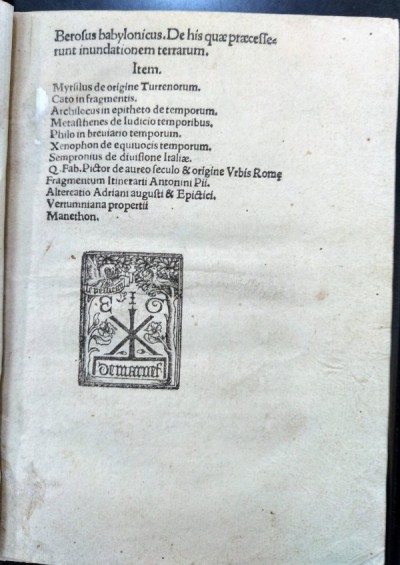 Berosus babylonicus. De his quæ præcesse-
runt inundationem terrarum.
Item.
Myrsilus de origine Turrenorum.
Cato in fragmentis.
Archilocus in epitheto de temporum.
Metasthenes de Iudicio temporibus.
Philo in breuiario temporum.
Xenophon de equiuocis temporum.
Sempronius de diuisione Italiæ.
Q. Fab. Pictor de aureo seculo & origine Vrbis Romę
Fragmentum Itinerarii Antonini Pii.
Altercatio Adriani augusti & Epictici.
Vertumniana propertii
Manethon.
E I G
demarnef